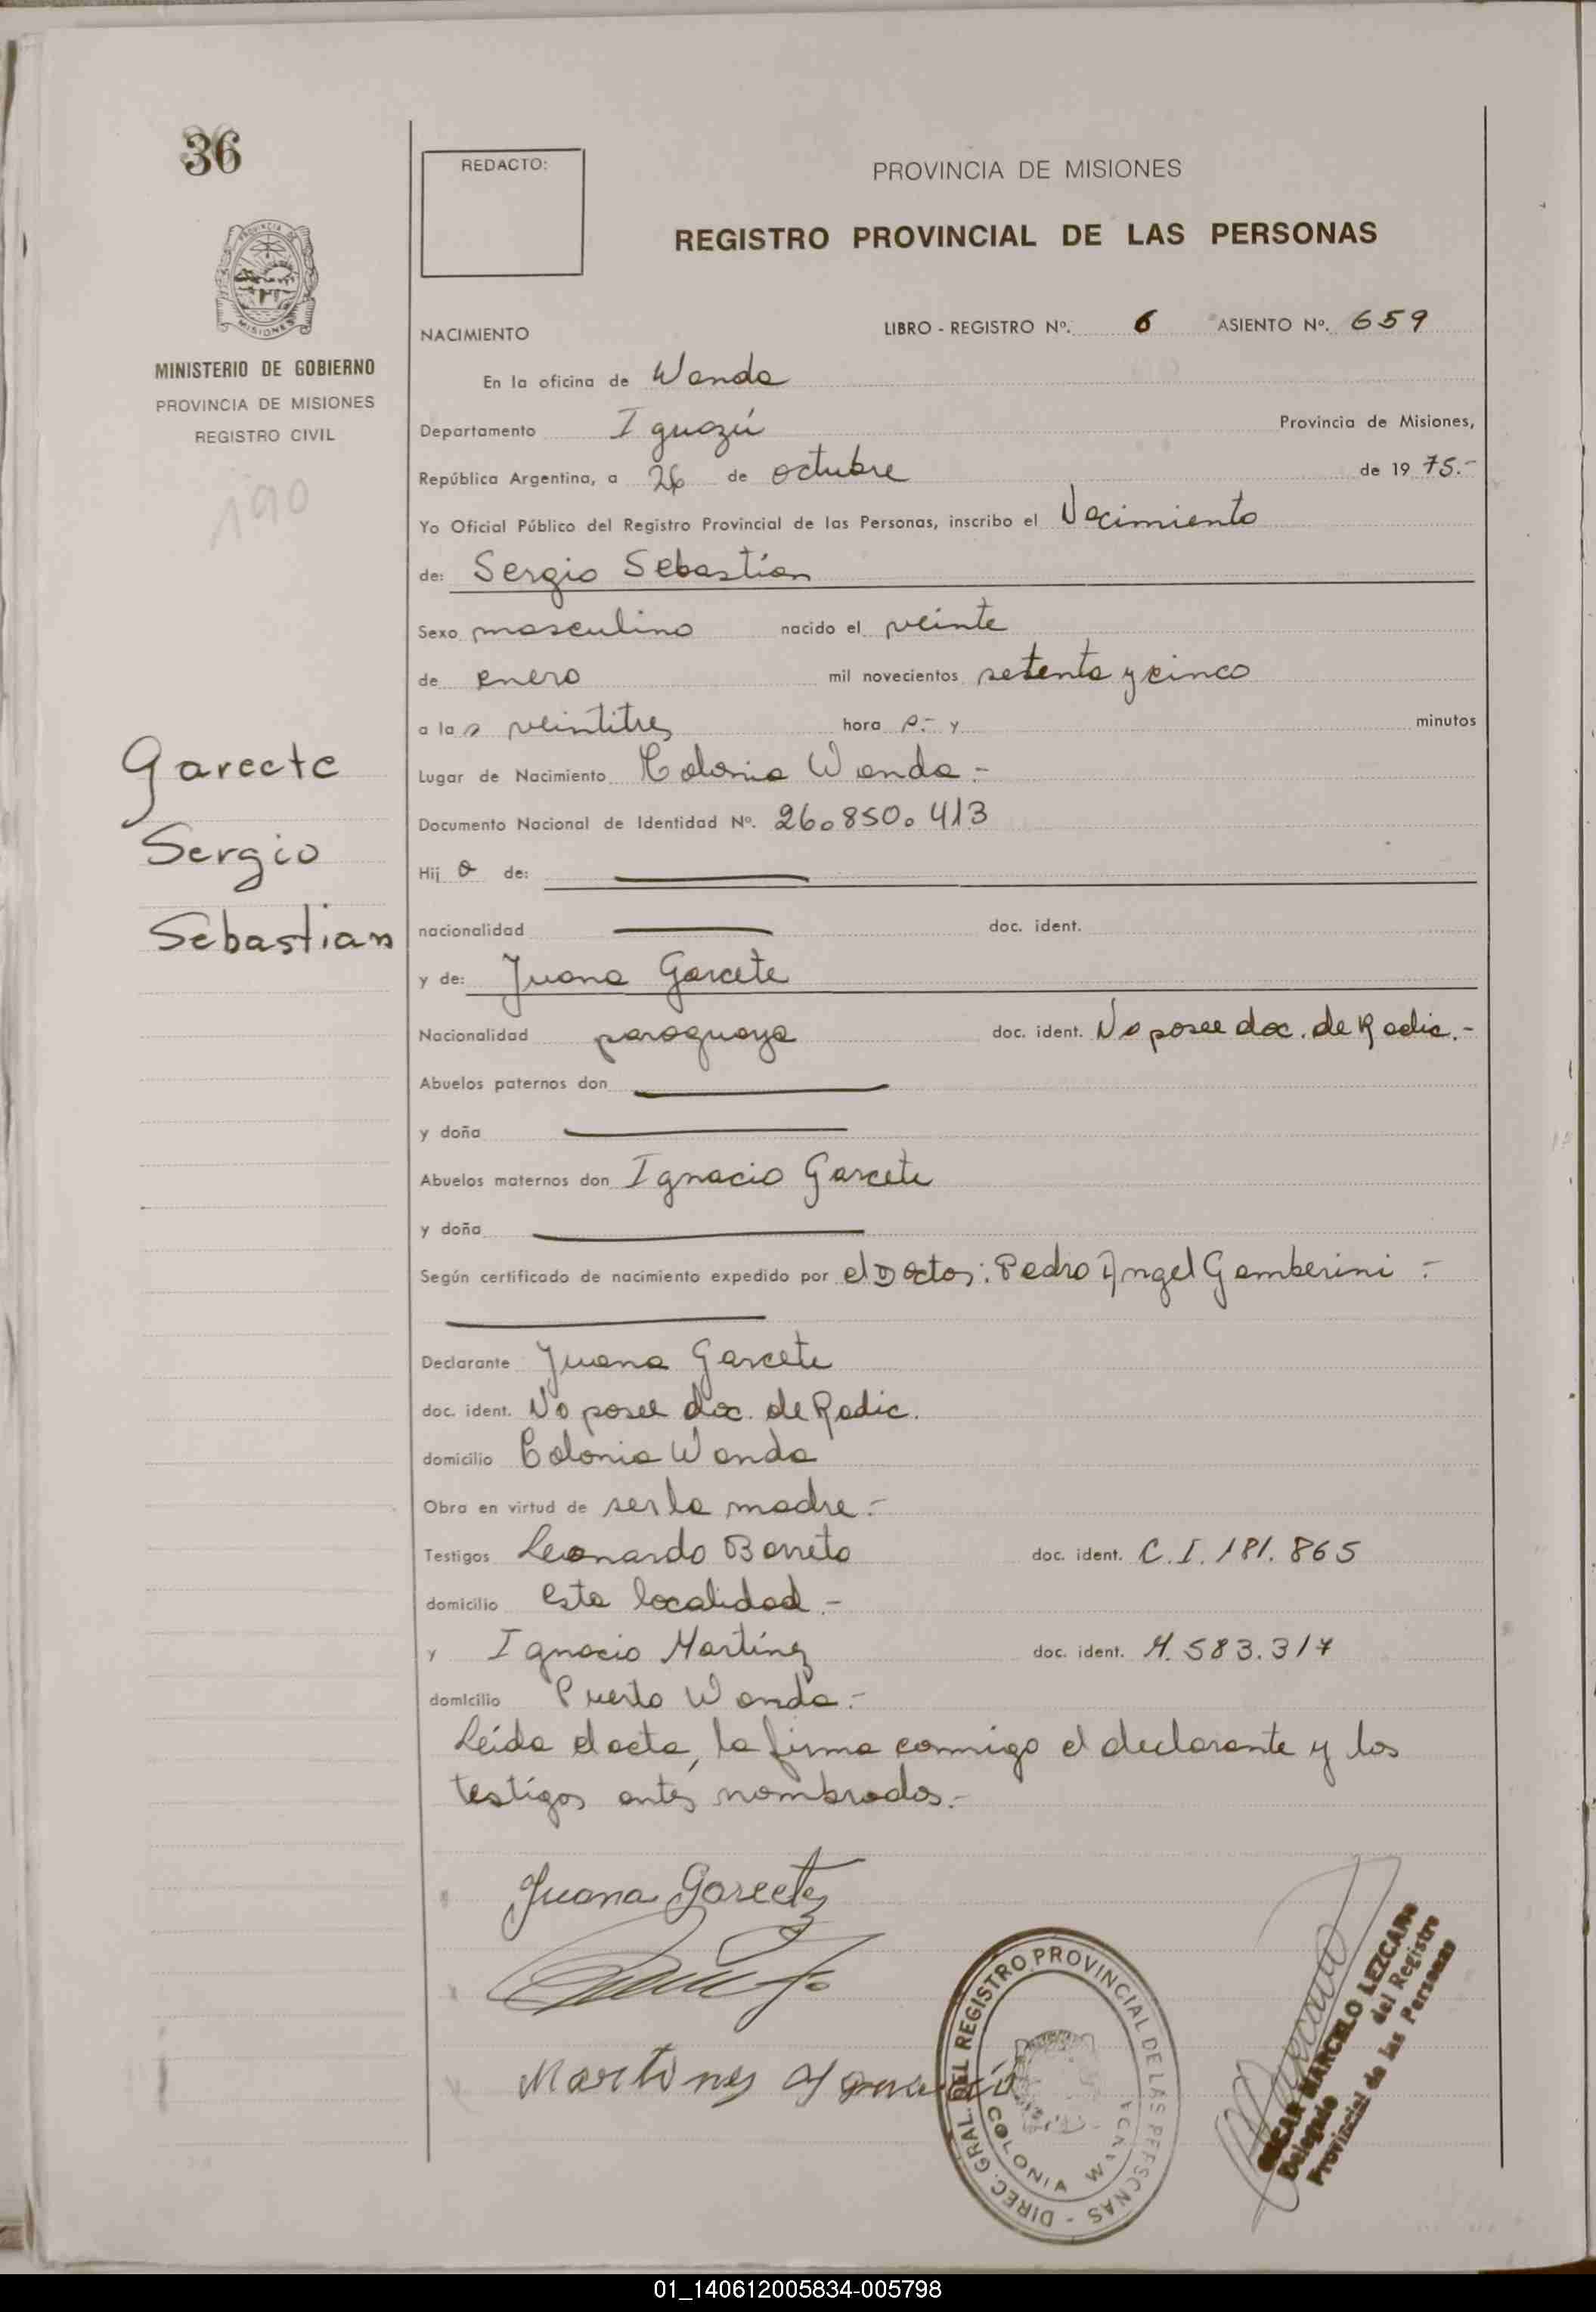 36
REDACTO:
PROVINCIA DE MISIONES
REGISTRO PROVINCIAL DE LAS PERSONAS
PROVINCIA DE
MISIONES
MINISTERIO DE GOBIERNO
PROVINCIA DE MISIONES
REGISTRO CIVIL
190
NACIMIENTO
LIBRO - REGISTRO Nº. 6 ASIENTO Nº. 659
En la oficina de Wanda
Departamento Iguazú Provincia de Misiones,
República Argentina, a 26 de octubre de 19 75.-
Yo Oficial Público del Registro Provincial de las Personas, inscribo el Nacimiento
de: Sergio Sebastian
Sexo masculino nacido el veinte
de enero mil novecientos setenta y cinco
a las veintitres hora s.- y minutos
Lugar de Nacimiento Colonia Wanda.-
Documento Nacional de Identidad Nº. 26.850.413
Hij o de:
nacionalidad doc. ident.
y de: Juana Garcete
Nacionalidad paraguaya doc. ident. No posee doc. de Radic.-
Abuelos paternos don
y doña
Abuelos maternos don Ignacio Garcete
y doña
Según certificado de nacimiento expedido por el Doctor: Pedro Angel Gamberini.-
Declarante Juana Garcete
doc. ident. No posee doc. de Radic.
domicilio Colonia Wanda
Obra en virtud de ser la madre.-
Testigos Leonardo Barreto doc. ident. C.I. 181.865
domicilio esta localidad.-
y Ignacio Martínez doc. ident. M. 583.317
domicilio Puerto Wanda.-
Leída el acta, la firma conmigo el declarante y los
testigos antes nombrados.-
Garcete
Sergio
Sebastian
Juana Garcete
Martinez Ygnacio
DIREC. GRAL. DEL REGISTRO PROVINCIAL DE LAS PERSONAS -
COLONIA WANDA
OSCAR MARCELO LEZCANO
Delegado del Registro
Provincial de las Personas
01_140612005834-005798